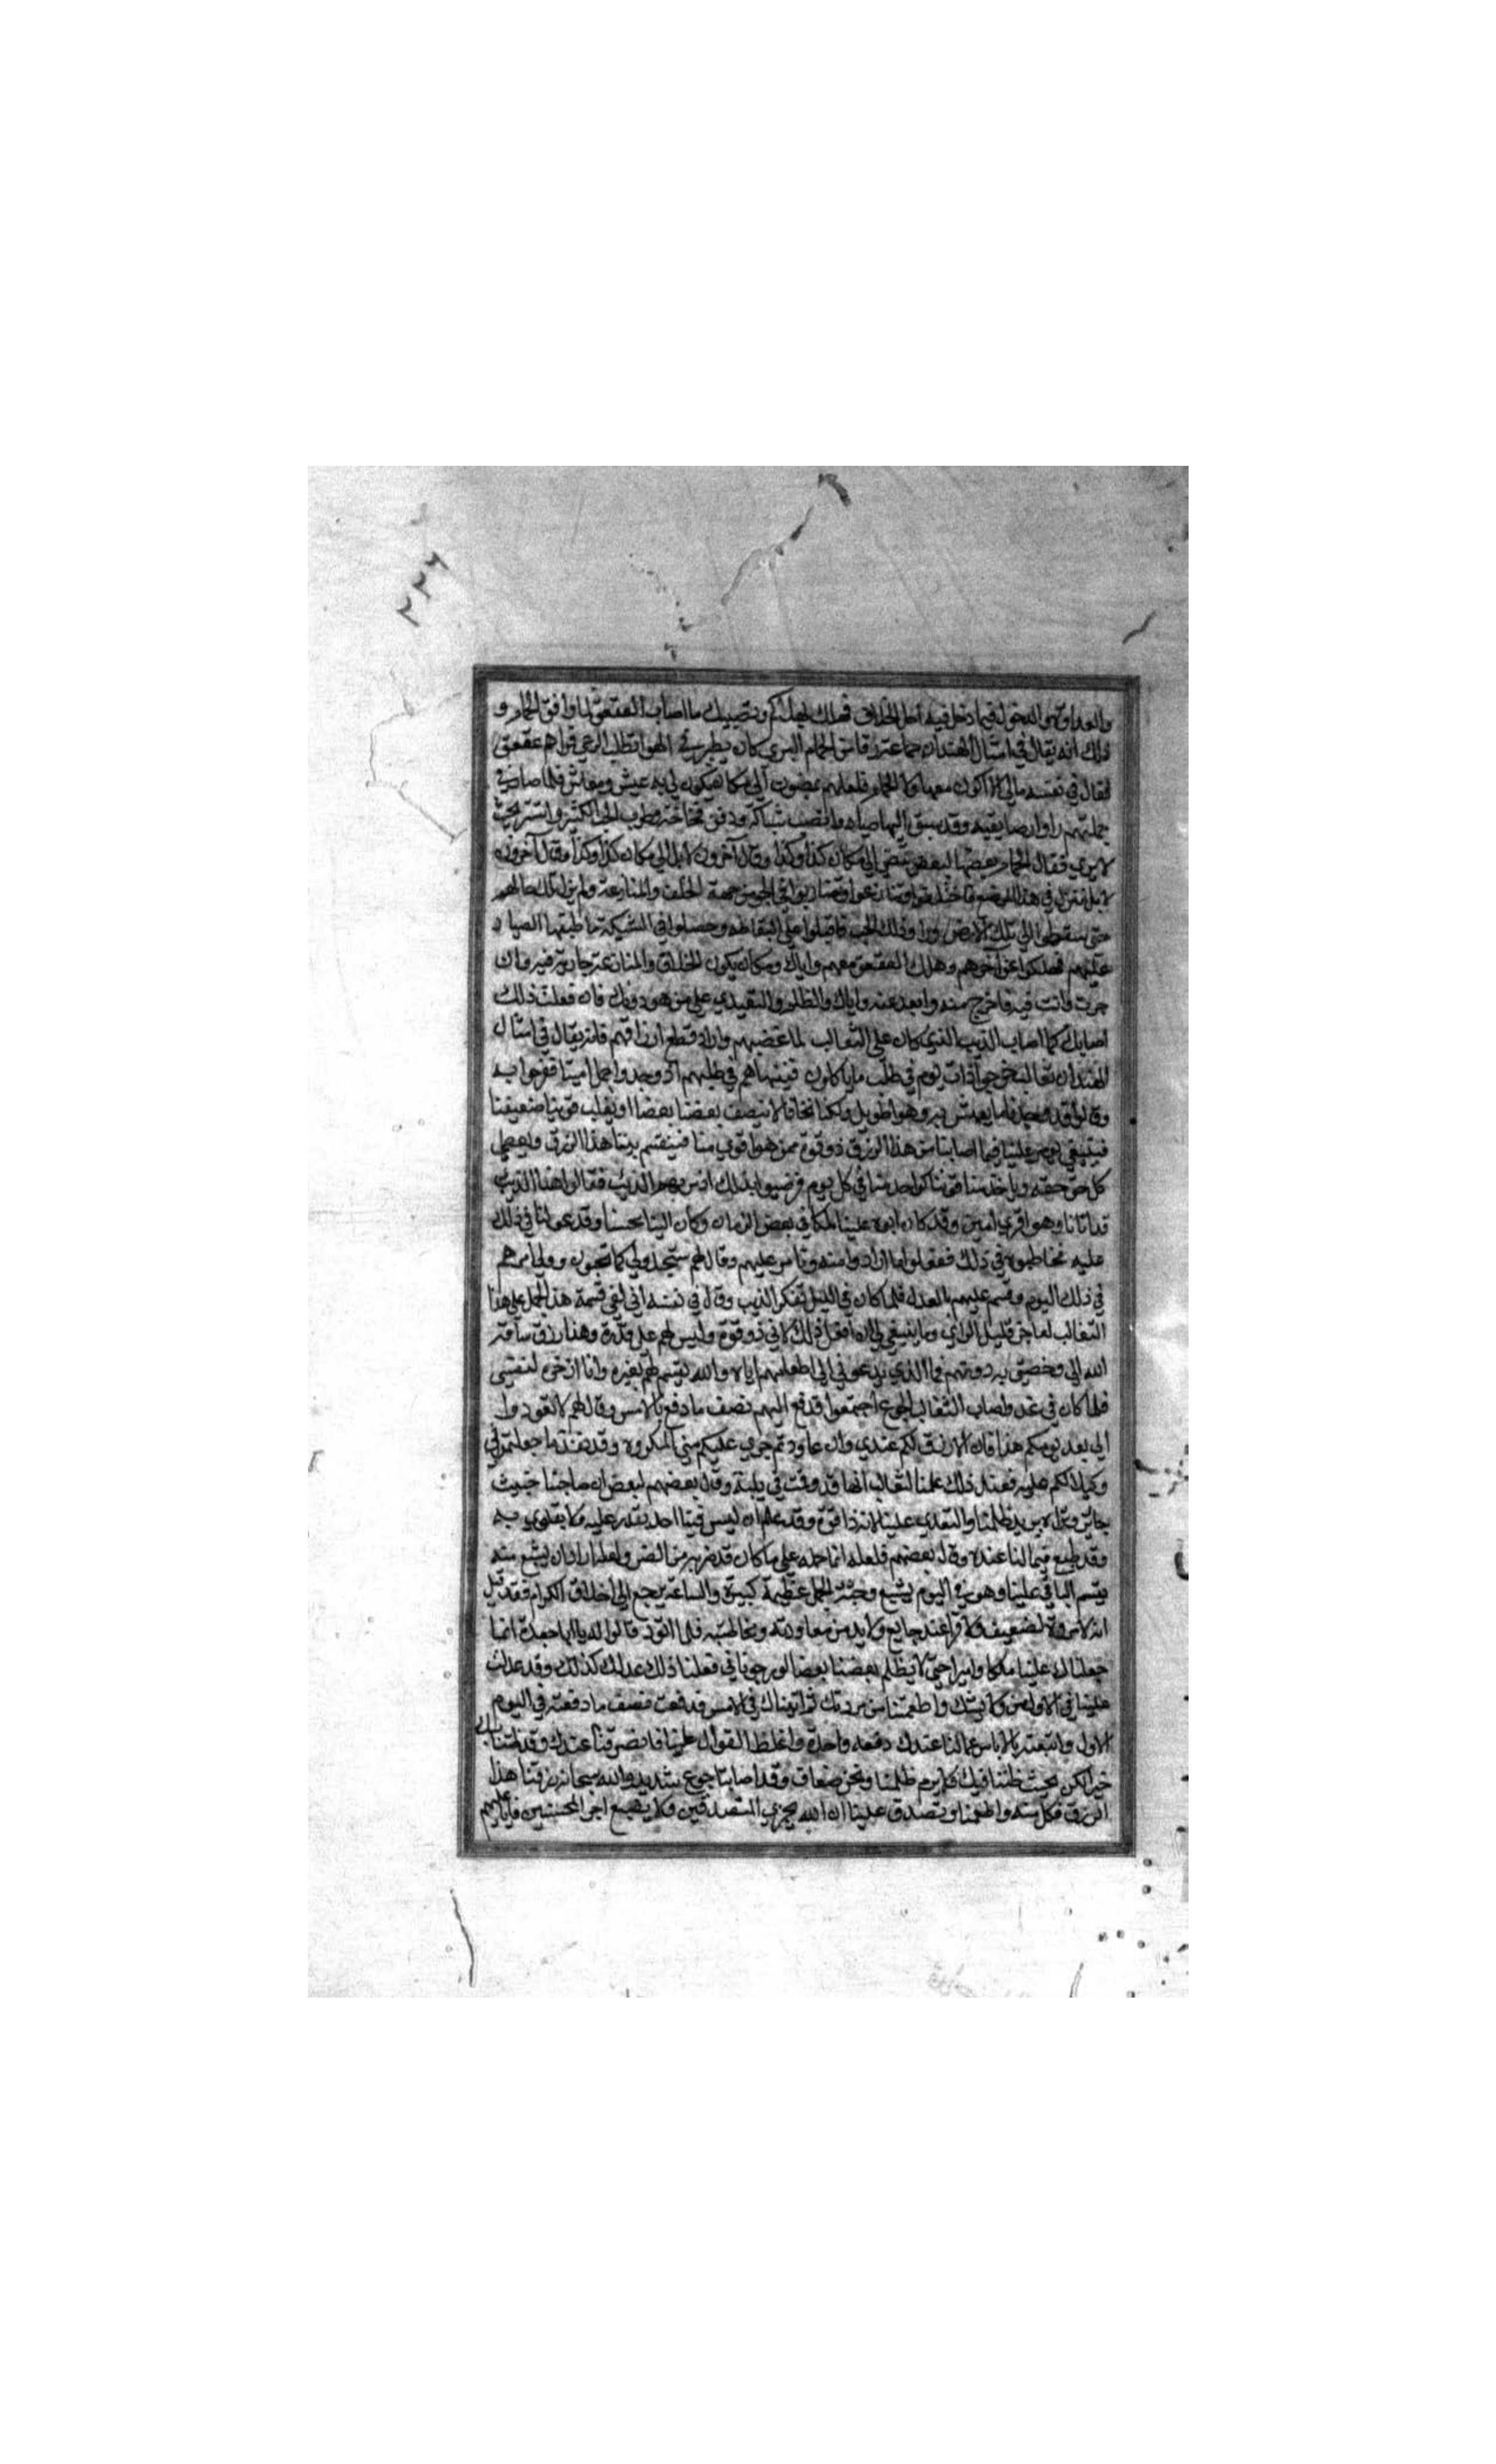 ٢٢٦
والعداوة والدخول فيما دخل فيه اهل الخلاف فتهلك بهلاكهم ويصيبك ما اصاب العقعق لما وافق الحمام و
ذلك انه يقال في امثال الهند ان جماعة من الحمام البري كان يطير في الهوا يطلب الرعي فراهم عقعق
فقال في نفسه مالي لا اكون مع هاولا الحمام فلعلهم يمضون الى مكان يكون لي به عيش ومعاش فلما صار في
جملتهم راوا وقد سبق اليها صياد وانصب شباكه ودفن فخاخه وطرح الحب الكثير واستتر بحيث
لا يرى فقال الحمام بعضها لبعض نمضي الى مكان كذا وكذا وقال آخرون لا بل الى مكان كذا وكذا وقال آخرون
لا بل ننزل في هذا الموضع فاختلفوا وتنازعوا وتضاربوا في الجو من جهة الخلف والمنازعة ولم يزل تلك حالهم
حتى سقطوا الى تلك الارض وراوا ذلك الحب فاقبلوا على التقاطه وحصلوا في الشبكة فاطبقها الصياد
عليهم فهلكوا عن آخرهم وهلك العقعق معهم واياك ومكان يكون الخلاف والمنازعة جارية فيه وان
جرت وانت فيه فاخرج منه وابعد عنه واياك والظلم والتعدي على من هو دونك فان فعلت ذلك
اصابك كما اصاب الذيب الذي كان على الثعالب لما غصبهم واراد قطع ارزاقهم فانه يقال في امثال
الهند ان ثعالب خرجوا ذات يوم في طلب ما ياكلون فبينما هم في طلبهم اذ وجدوا جملا ميتا ففرحوا به
وقالوا قد وجدنا ما نعيش به وهو طويل ولكنا نخاف لا ينصف بعضنا بعضا او يغلب قوينا ضعيفنا
فينبغي علينا فيما اصابنا من هذا الرزق ذو قوة ممن هو اقوى منا فيقسم بيننا هذا الرزق ويعطي
كل حق حقه وياخذ منا قوتنا كواحد منا في كل يوم فرضيوا بذلك اذ مر بهم الذيب فقالوا هذا الذيب
قد اتانا وهو اقوى امين وقد كان ابوه علينا ملكا في بعض الزمان وكان الينا محسنا وقد عولنا في ذلك
عليه فخاطبوه في ذلك ففعلوا ما ارادوا منه وتامر عليهم وقال لهم ستجدوني كما تحبون وولى امرهم
في ذلك اليوم وقسم عليهم بالعدل فلما كان في الليل تفكر الذيب وقال في نفسه اني لفي قسمة هذا الجمل على هذا
الثعالب لعاجز قليل الراي وما ينبغي لي ان افعل ذلك لاني ذو قوة وليس لهم على قدرة وهذا رزق ساقه
الله الي وخصني به دونهم فما الذي يدعوني الى اطعامهم اياه والله يقسم لهم بغيره وانا ادخره لنفسي
فلما كان في غد واصاب الثعالب الجوع اجتمعوا فدفع اليهم نصف ما دفع بالامس وقال لهم لا تعودوا
الى بعد يومكم هذا فان لا رزق لكم عندي وان عاودتم جرى عليكم مني المكروه وقد نفذ ما جعلتموني
وكيلا لكم عليه فعند ذلك علمنا الثعالب انها قد وقعت في بلية وقال بعضهم لبعض ان صاحبنا خبيث
جائر وعل يريد ظلمنا والتعدي علينا لانه ذا قوة وقد علم ان ليس فينا احد يقدر عليه ولا يقاوى به
وقد طمع فيما لنا عنده وقال بعضهم فلعله انما حمله على ما كان قد ضر به من الضر ولعله اراد ان يشبع منه
ويقسم الباقي علينا وهو في اليوم يشبع وجثة الجمل عظيمة كبيرة والساعة يرجع الى اخلاق الكرام فقد قيل
انه لا مروة لضعيف ولا قرا عند جايع ولا بد من معاودته ومخاطبته فلما اتوه قالوا له يا ابا جعدة انما
جعلناك علينا ملكا واميرا حتى لا يظلم بعضنا بعضا ورجونا في فعلنا ذلك عدلك كذلك وقد عدلت
علينا في الاولى واطعمتنا من مروتك ثم اتيناك في الامس فدفعت نصف ما دفعته في اليوم
الاول وانتهرتنا بالاياس مما لنا عندك دفعة واحدة واغلظ القول علينا فانصرفنا عندك وقد ظننا بك
خيرا لكن بحيث ظننا فيك فلا يرم ظلمنا ونحن ضعاف وقد اصابنا جوع شديد والله سبحانه رزقنا هذا
الرزق فكل منه واطعمنا وتصدق علينا ان الله يجزي المتصدقين ولا يضيع اجر المحسنين فابا عليهم